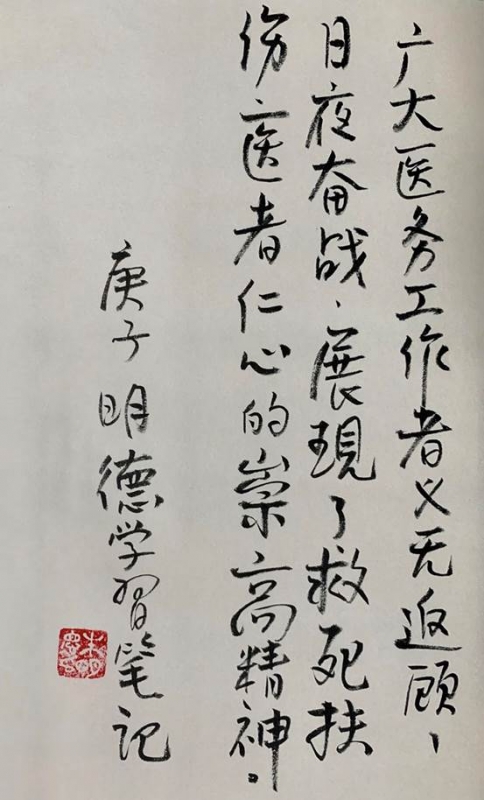 广大医务工作者义无返顾、
日夜奋战、展現了救死扶
伤、医者仁心的崇高精神。
庚子明德学習笔记